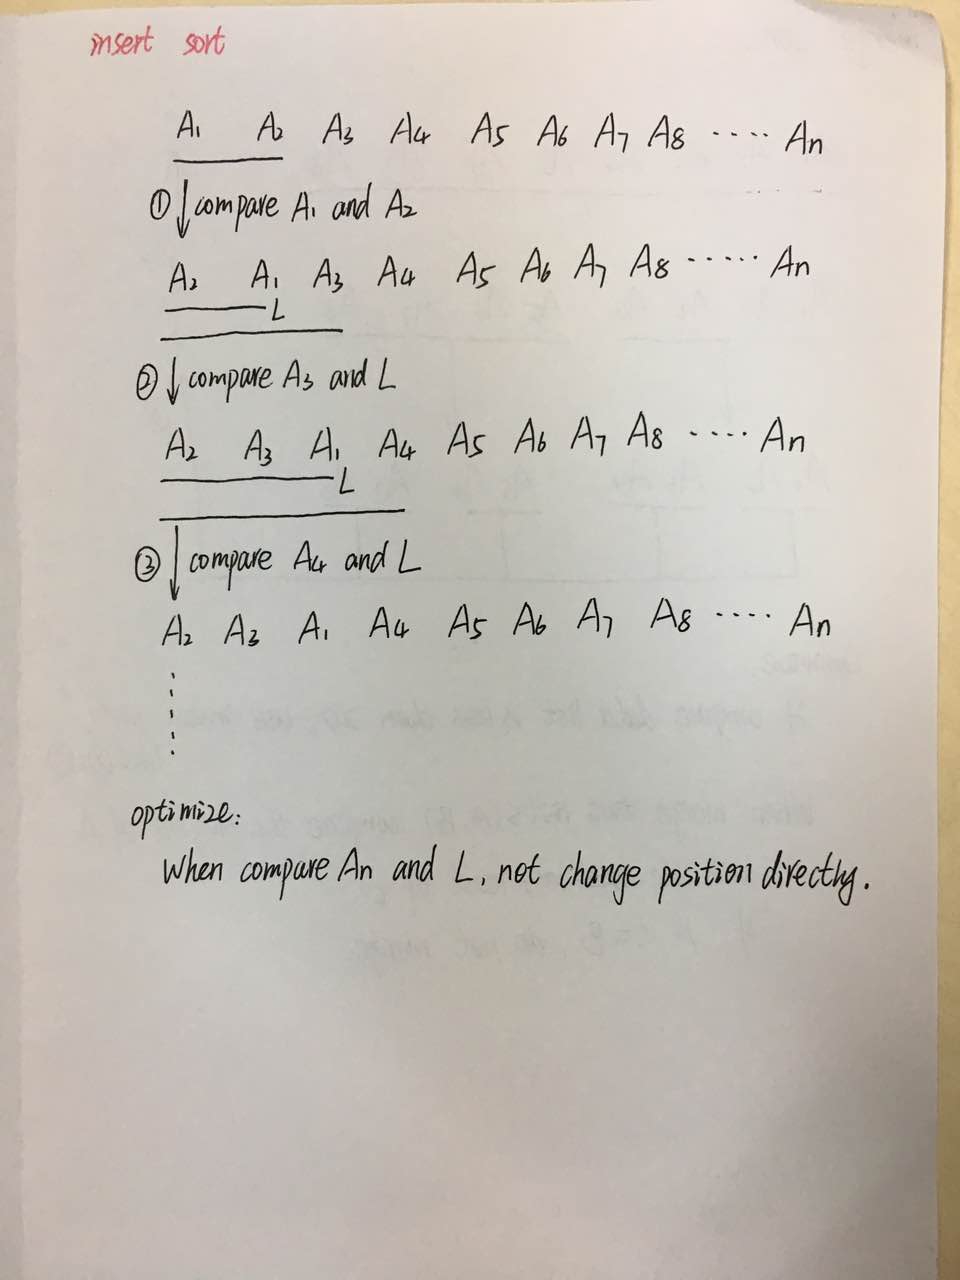 insert sort
A1 A2 A3 A4 A5 A6 A7 A8 ···· An
① compare A1 and A2
A2 A1 A3 A4 A5 A6 A7 A8 ····· An
L
② compare A3 and L
A2 A3 A1 A4 A5 A6 A7 A8 ···· An
L
③ compare A4 and L
A2 A3 A1 A4 A5 A6 A7 A8 ···· An
optimize:
When compare An and L, not change position directly.